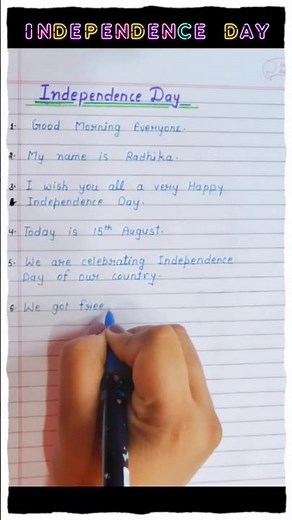 INDEPENDENCE DAY
Independence Day
1. Good Morning Everyone.
2. My name is Radhika.
3. I wish you all a very Happy
Independence Day.
4. Today is 15th August.
5. We are celebrating Independence
Day of our country.
6. We got free